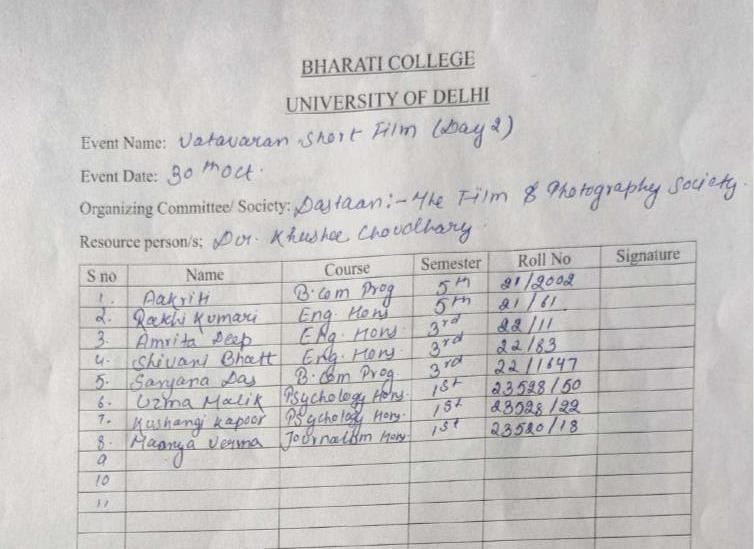 BHARATI COLLEGE
UNIVERSITY OF DELHI
Event Name: Vatavaran Short Film (Day 2)
Event Date: 30th Oct.
Organizing Committee/ Society: Dastaan:- The Film & Photography Society.
Resource person/s; Dr. Khushee Choudhary
S no Name Course Semester Roll No Signature
1. Aakriti B.Com Prog 5th 21/2002
2. Rakhi Kumari Eng. Hons 5th 21/61
3. Amrita Deep Eng. Hons. 3rd 22/11
4. Shivani Bhatt Eng. Hons. 3rd 22/83
5. Sanjana Das B.Com Prog 3rd 22/1647
6. Uzma Malik Psychology Hons. 1st 23528/50
7. Kushangi Kapoor Psychology Hons. 1st 23528/22
8. Maanya Verma Journalism Hons. 1st 23520/18
9
10
11